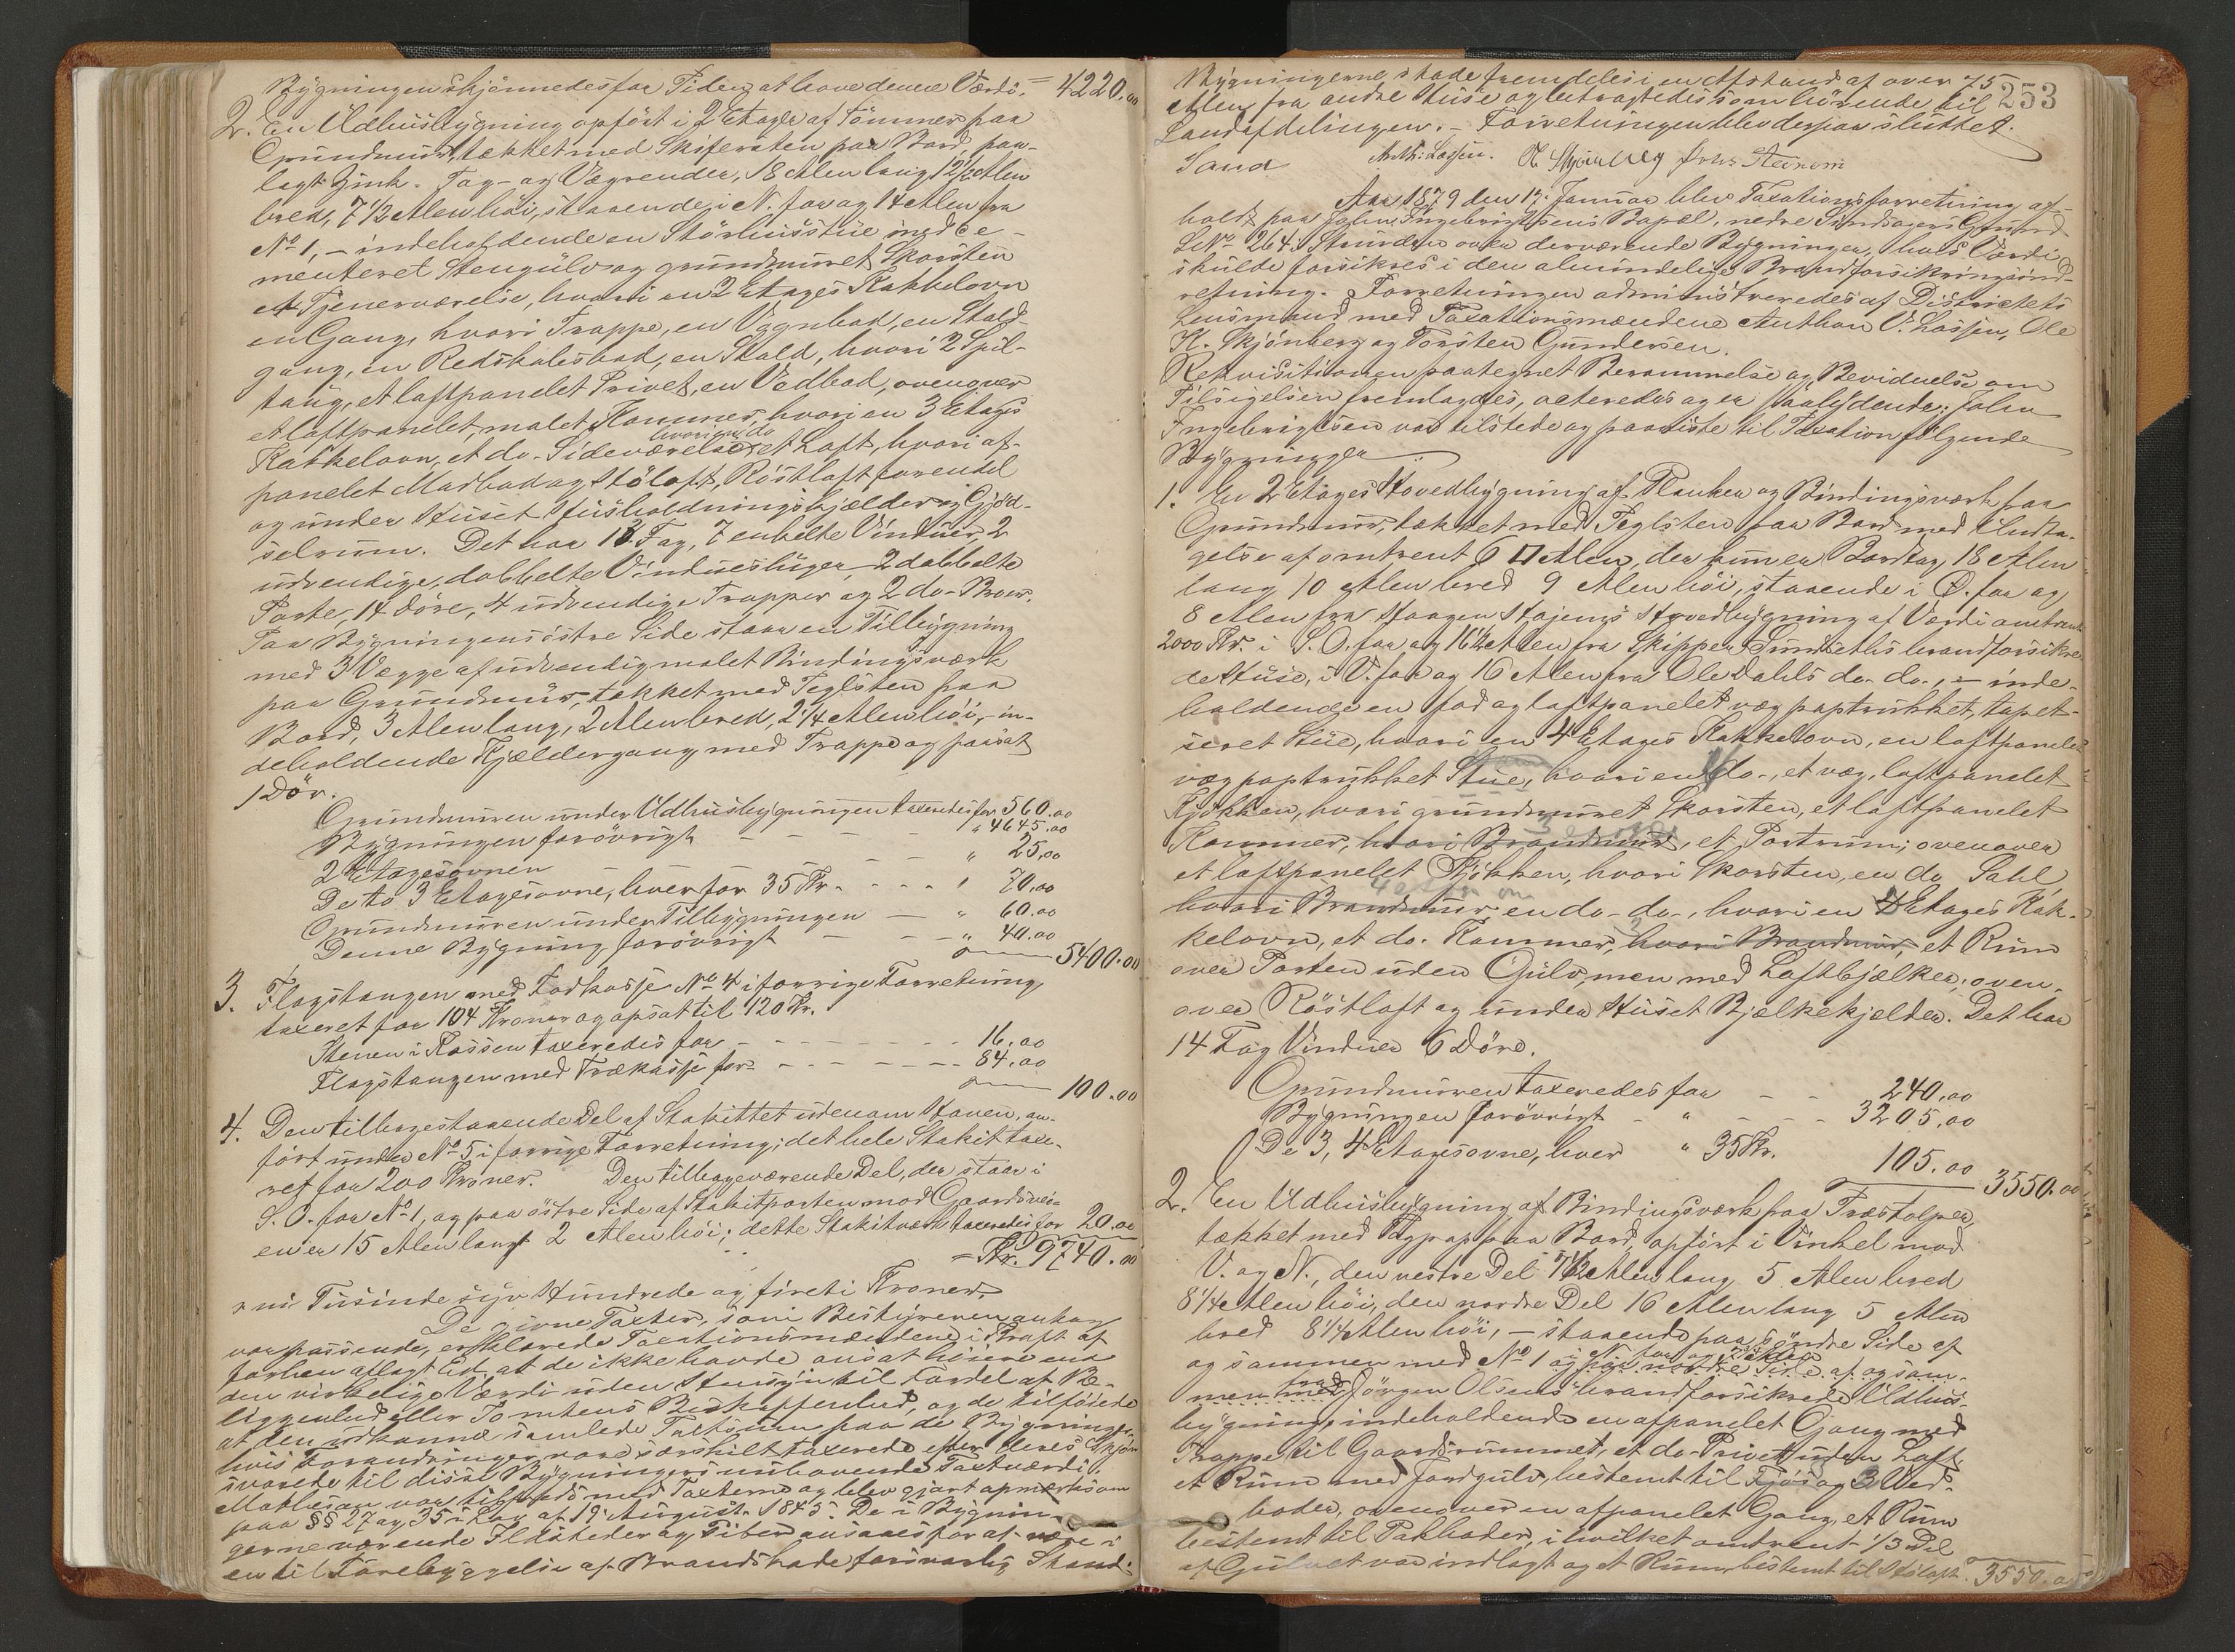 Bygningen skjønnedes for Tiden at have denne Værdi. = 4220.00
2. En Udhusbygning opført i 2 Etager af Tømmer paa
Grundmur, tækket med Skifersten paa Bord, paa-
lagt Zink-Tag- og Vægrender, 18 Alen lang 12 1/2 Alen
bred, 7 1/2 Alen høi, staaende i N. for og 14 Alen fra
No 1, – indeholdende en Størhusstue med ce-
menteret Stengulv og grundmuret Skorsten
et Tjenerværelse, hvori en 2 Etages Kakkelovn
en Gang, hvori Trappe, en Vognbod, en Stald-
gang, en Redskabsbod, en Stald, hvori 2 Spil-
taug, et loftpanelet Privet, en Vedbod, ovenover
et loftpanelet, malet Kammer, hvori en 3 Etages
Kakkelovn, et do. Sideværelse hvori en do, et Loft, hvori af-
panelet Madbod og Høloft, Røstloft foroventil
og under Huset Husholdningskjælder og Gjød-
selrum. Det har 13 Fag, 7 enkelte Vinduer, 2
udvendige, dobbelte Vindueslüger, 2 dobbelte
Porte, 14 Døre, 4 udvendige Trapper og 2 do. Broer.
Paa Bygningens østre Side staar en Tilbygning
med 3 Vægge af udvendig malet Bindingsværk
paa Grundmur, tækket med Teglsten paa
Bord, 3 Alen lang, 2 Alen bred, 2 1/4 Alen høi, in-
deholdende Kjældergang med Trappe og paasat
1 Dør.
Grundmuren under Udhusbygningen taxeredes for 560.00
Bygningen forøvrigt – – – " 4645.00
2 Etagesovnen – – " 25,00
De to 3 Etagesovne, hver for 35 Kr. – – – " 70.00
Grundmuren under Tilbygningen – " 60.00
Denne Bygning forøvrigt – – " 40.00
5400.00
3. Flagstangen med Fodkasse No 4 i forrige Forretning
taxeret for 104 Kroner og opsat til 120 Kr.
Stenen i Kassen taxeredes for – – – – – – – 16.00
Flagstangen med Trækasse for – – – – – – 84.00
100.00
4. Den tilbagestaaende Del af Stakittet udenom Haven, an-
ført under No 5 i forrige Forretning; det hele Stakit taxe-
ret for 200 Kroner. Den tilbageværende Del, der staar i
S. O. for No 1, og paa østre Side af Stakitporten mod Gaardsvei-
en er 15 Alen langt 2 Alen høi; dette Stakitværk taxeredes for 20.00
= Kr. 9740.00
ni Tusinde syv Hundrede og firti Kroner.
De givne Taxter, som Bestyreren ankom
var passende, erklærede Taxationsmændene i Kraft af
forhen aflagt Ed, at de ikke havde ansat høiere end
den virkelige Værdi uden Hensyn til Fordel af Be-
liggenhed eller Tomtens Beskaffenhed, og de tilføiede
at den udkomne samlede Taxtsum paa de Bygninger
hvis Forandringer vare særskilt taxerede efter deres Skjøn
svarede til disse Bygningers nuhavende Taxtværdi.
var tilfreds med Taxterne og blev gjort opmærksom
paa §§ 27 og 35 i Lov af 19 August 1845. De i Bygnin-
gerne værende Ildsteder og Piber ansaaes for at være i
en til Forebyggelse af Brandskade forsvarlig Stand.
253
Bygningerne stode fremdeles i en Afstand af over 75
Alen fra andre Huse og betragtedes som hørende til
Landafdelingen. – Forretningen blev derpaa sluttet.
Sand Anth: Lassen. O. H. Skjønberg
Aar 1879 den 17. Januar blev Taxationsforretning af-
holdt paa John Ingebrigtsens Bopæl, nedre Sundsagers Grund
LNo 264. Stranden over derværende Bygninger, hvis Værdi
skulde forsikres i den almindelige Brandforsikringsind-
retning. Forretningen administreredes af Distriktets
Lensmand med Taxationsmændene Anthon V. Lassen, Ole
H. Skjønberg og Torsten Gundersen.
Rekvisitionen paategnet Berammelse og Bevidnelse om
Tilsigelsen fremlagdes, acteredes og er saalydende: John
Ingebrigtsen var tilstede og paaviste til Taxation følgende
Bygninger:
1. En 2 Etages Hovedbygning af Planker og Bindingsværk paa
Grundmur, tækket med Teglsten paa Bord med Undta-
gelse af omtrent 6 □ Alen, der kun er Bordtag, 18 Alen
lang 10 Alen bred 9 Alen høi, staaende i Ø. for og
8 Alen fra Haagen Hajems Hovedbygning af Værdi omtrent
2000 Kr. i S. O. for og 16 1/2 Alen fra Skipper Sundseths brandforsikre-
de Huse, i V. for og 16 Alen fra Ole Dahls do. do., – inde-
holdende en fod og loftpanelet væg paptrukket, tapet-
seret Stue, hvori en 4 Etages Kakkelovn, en loftpanelet
væg paptrukket Stue, hvori en do., et væg, loftpanelet
Kjøkken, hvori grundmuret Skorsten, et loftpanelet
Kammer, hvori Brandmur, et Portrum; ovenover
et loftpanelet Kjøkken, hvori Skorsten, en do. Sahl
hvori Brandmur, en do. do., hvori en 4 Etages Kak-
kelovn, et do. Kammer, hvori Brandmur, et Rum
over Porten uden Gulv, men med Loftbjælker, oven-
over Røstloft og under Huset Bjælkekjelder. Det har
14 Fag Vinduer 6 Døre.
Grundmuren taxeredes for – – 240.00
Bygningen forøvrigt – " – – – 3205.00
De 3, 4 Etagesovne, hver " 35 Kr. 105.00
3550.00
2. En Udhusbygning af Bindingsværk paa Træstolper,
tækket med Tagpap paa Bord, opført i Vinkel mod
V. og N., den vestre Del 7 1/2 Alen lang 5 Alen bred
8 1/4 Alen høi, den nordre Del 16 Alen lang 5 Alen
bred 8 1/4 Alen høi, – staaende paa søndre Side af
og sammen med No 1 og paa nordre Side af og sam-
men med Jørgen Olsens brandforsikrede Udhus-
bygning, indeholdende en afpanelet Gang med
Trappe til Gaardsrummet, et do. Privet uden Loft,
et Rum med Jordgulv, bestemt til Fjøs og 3 Ved-
boder, ovenover en afpanelet Gang, et Rum
bestemt til Pakboder, i hvilket omtrent 1/3 Del
af Gulvet var indlagt og et Rum, bestemt til Høloft. 3550.00